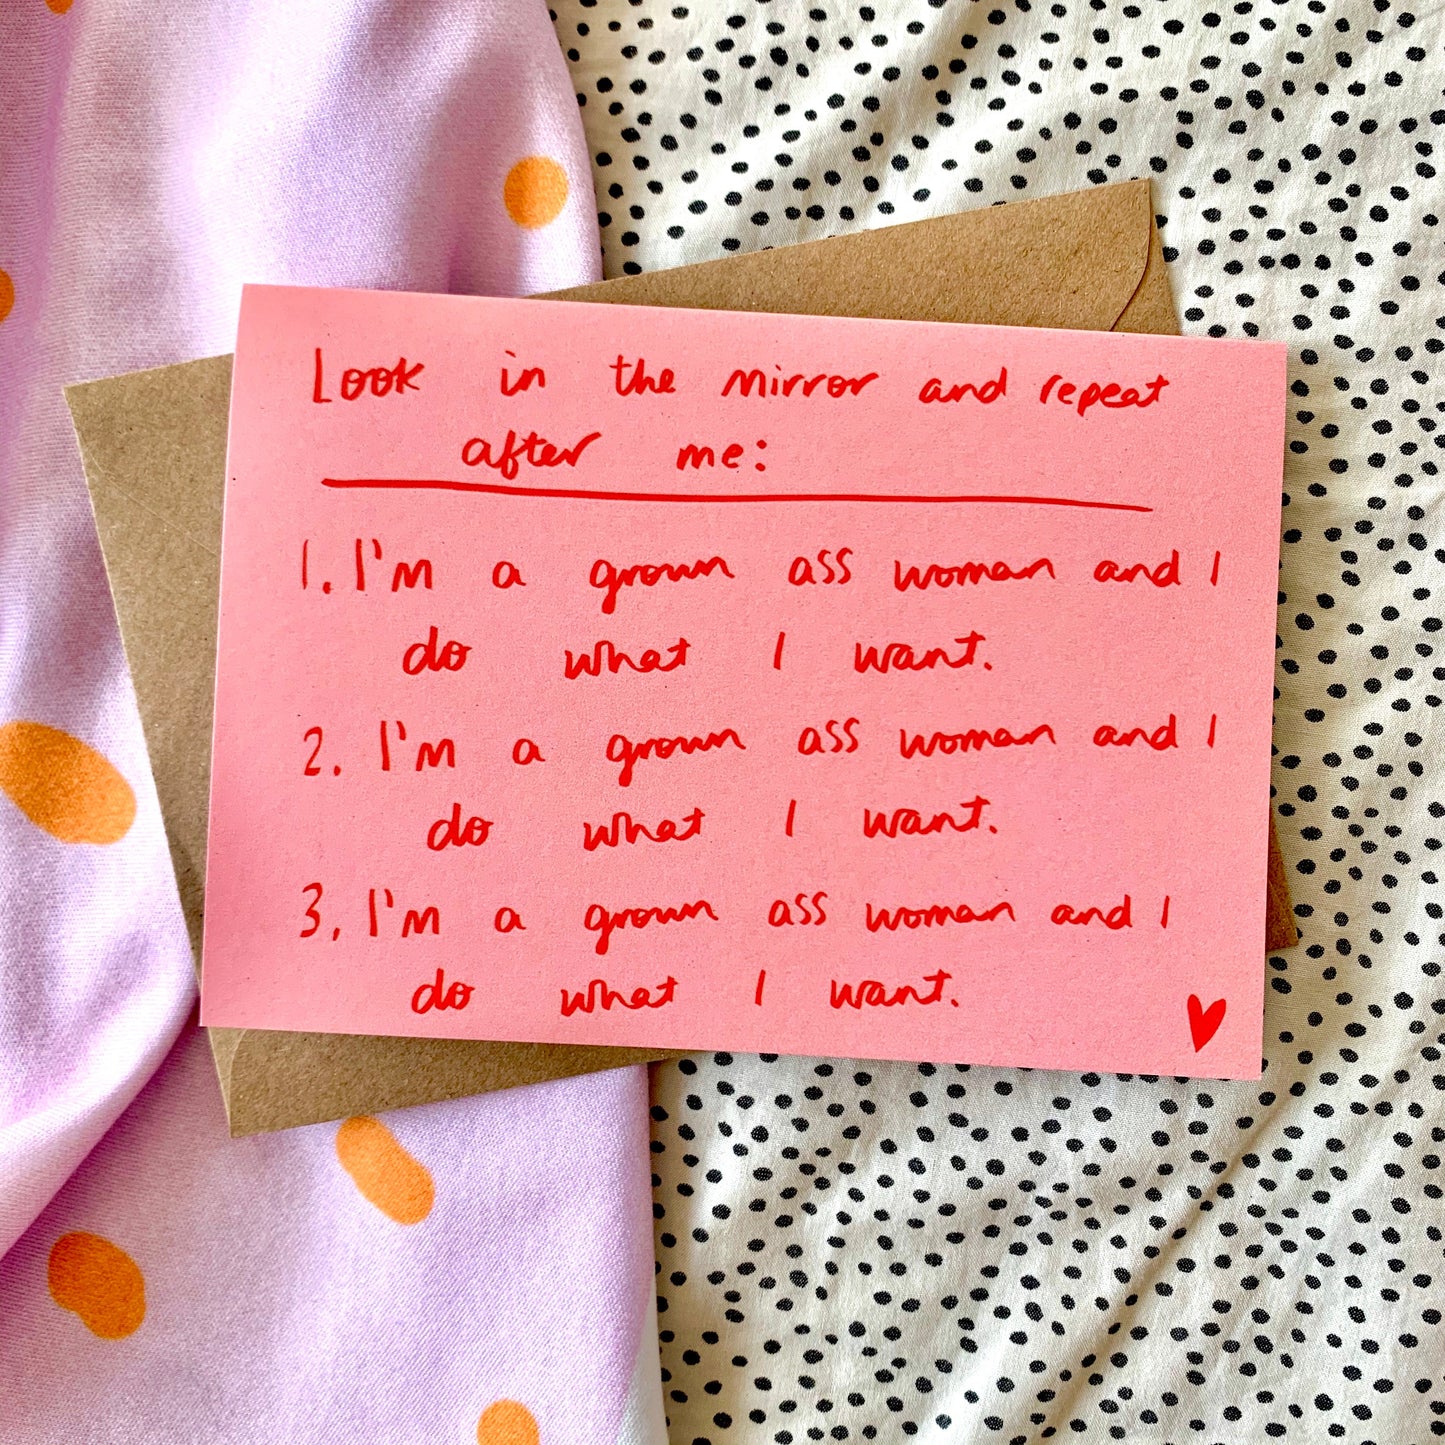 Look in the mirror and repeat
after me:
1. I'm a grown ass woman and I
do what I want.
2. I'm a grown ass woman and I
do what I want.
3. I'm a grown ass woman and I
do what I want.